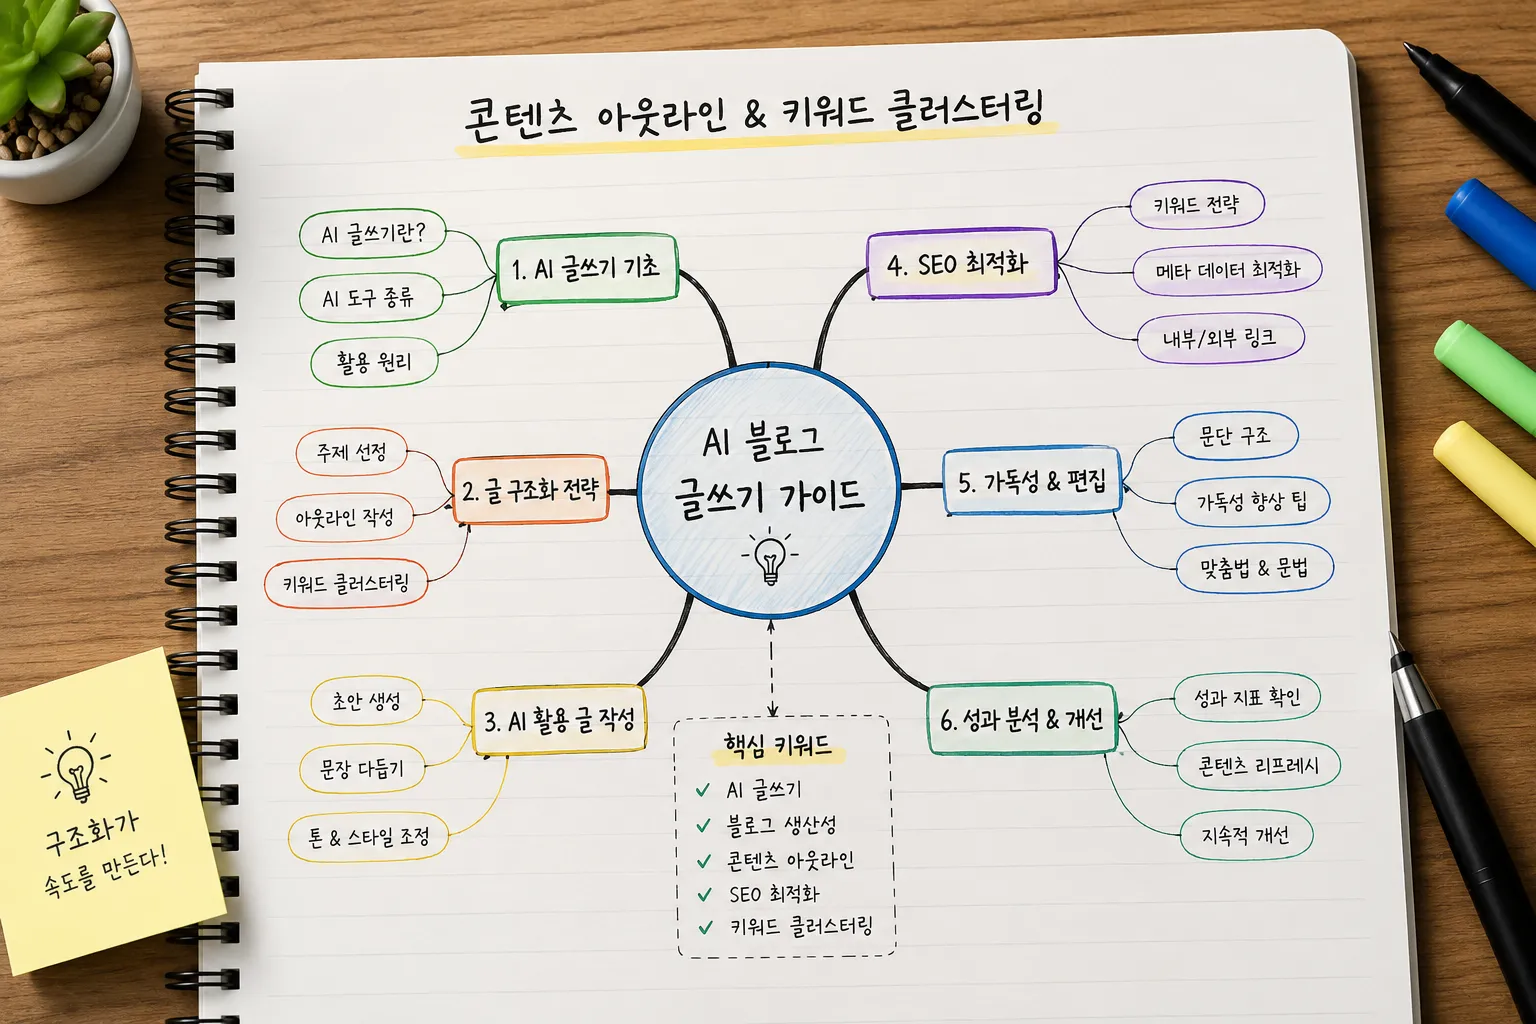 콘텐츠 아웃라인 & 키워드 클러스터링
AI 블로그
글쓰기 가이드
1. AI 글쓰기 기초
AI 글쓰기란?
AI 도구 종류
활용 원리
2. 글 구조화 전략
주제 선정
아웃라인 작성
키워드 클러스터링
3. AI 활용 글 작성
초안 생성
문장 다듬기
톤 & 스타일 조정
4. SEO 최적화
키워드 전략
메타 데이터 최적화
내부/외부 링크
5. 가독성 & 편집
문단 구조
가독성 향상 팁
맞춤법 & 문법
6. 성과 분석 & 개선
성과 지표 확인
콘텐츠 리프레시
지속적 개선
핵심 키워드
✓ AI 글쓰기
✓ 블로그 생산성
✓ 콘텐츠 아웃라인
✓ SEO 최적화
✓ 키워드 클러스터링
구조화가
속도를 만든다!